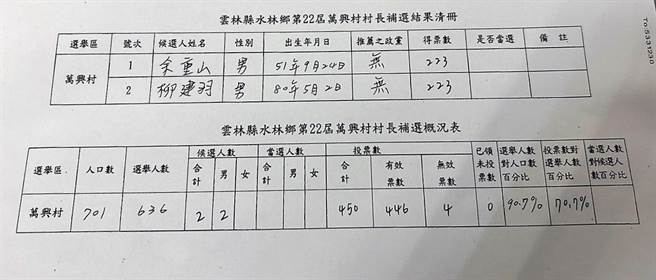 雲林縣水林鄉第22屆萬興村村長補選結果清冊
選舉區 號次 候選人姓名 性別 出生年月日 推薦之政黨 得票數 是否當選 備註
萬興村 1 余重山 男 51年9月24日 無 223
2 柳建羽 男 80年5月2日 無 223
雲林縣水林鄉第22屆萬興村村長補選概況表
選舉區 人口數 選舉人數 候選人數 當選人數 投票數 已領未投票數 選舉人數對人口數百分比 投票數對選舉人數百分比 當選人數對候選人數百分比
合計 男 女 合計 男 女 合計 有效票數 無效票數
萬興村 701 636 2 2 450 446 4 0 90.7% 70.7%
To:5331230